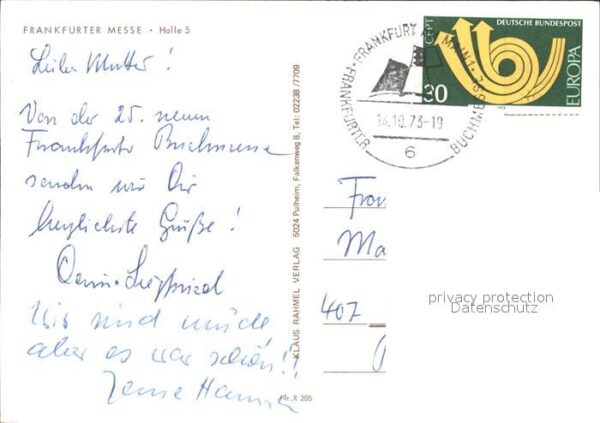 FRANKFURTER MESSE • Halle 5
Liebe Mutter!
Von der 25. neuen
Frankfurter Buchmesse
senden wir Dir
herzlichste Grüße!
Siegfried
Wir sind müde
aber es war schön!!
Hanna
Nr. R 205
KLAUS RAHMEL VERLAG 5024 Pulheim, Falkenweg 8, Tel: 02238/7709
FRANKFURT AM MAIN 1
FRANKFURTER BUCHMESSE
14.10.73-19
6
CEPT
DEUTSCHE BUNDESPOST
EUROPA
30
Frau
Ma
407
privacy protection
Datenschutz